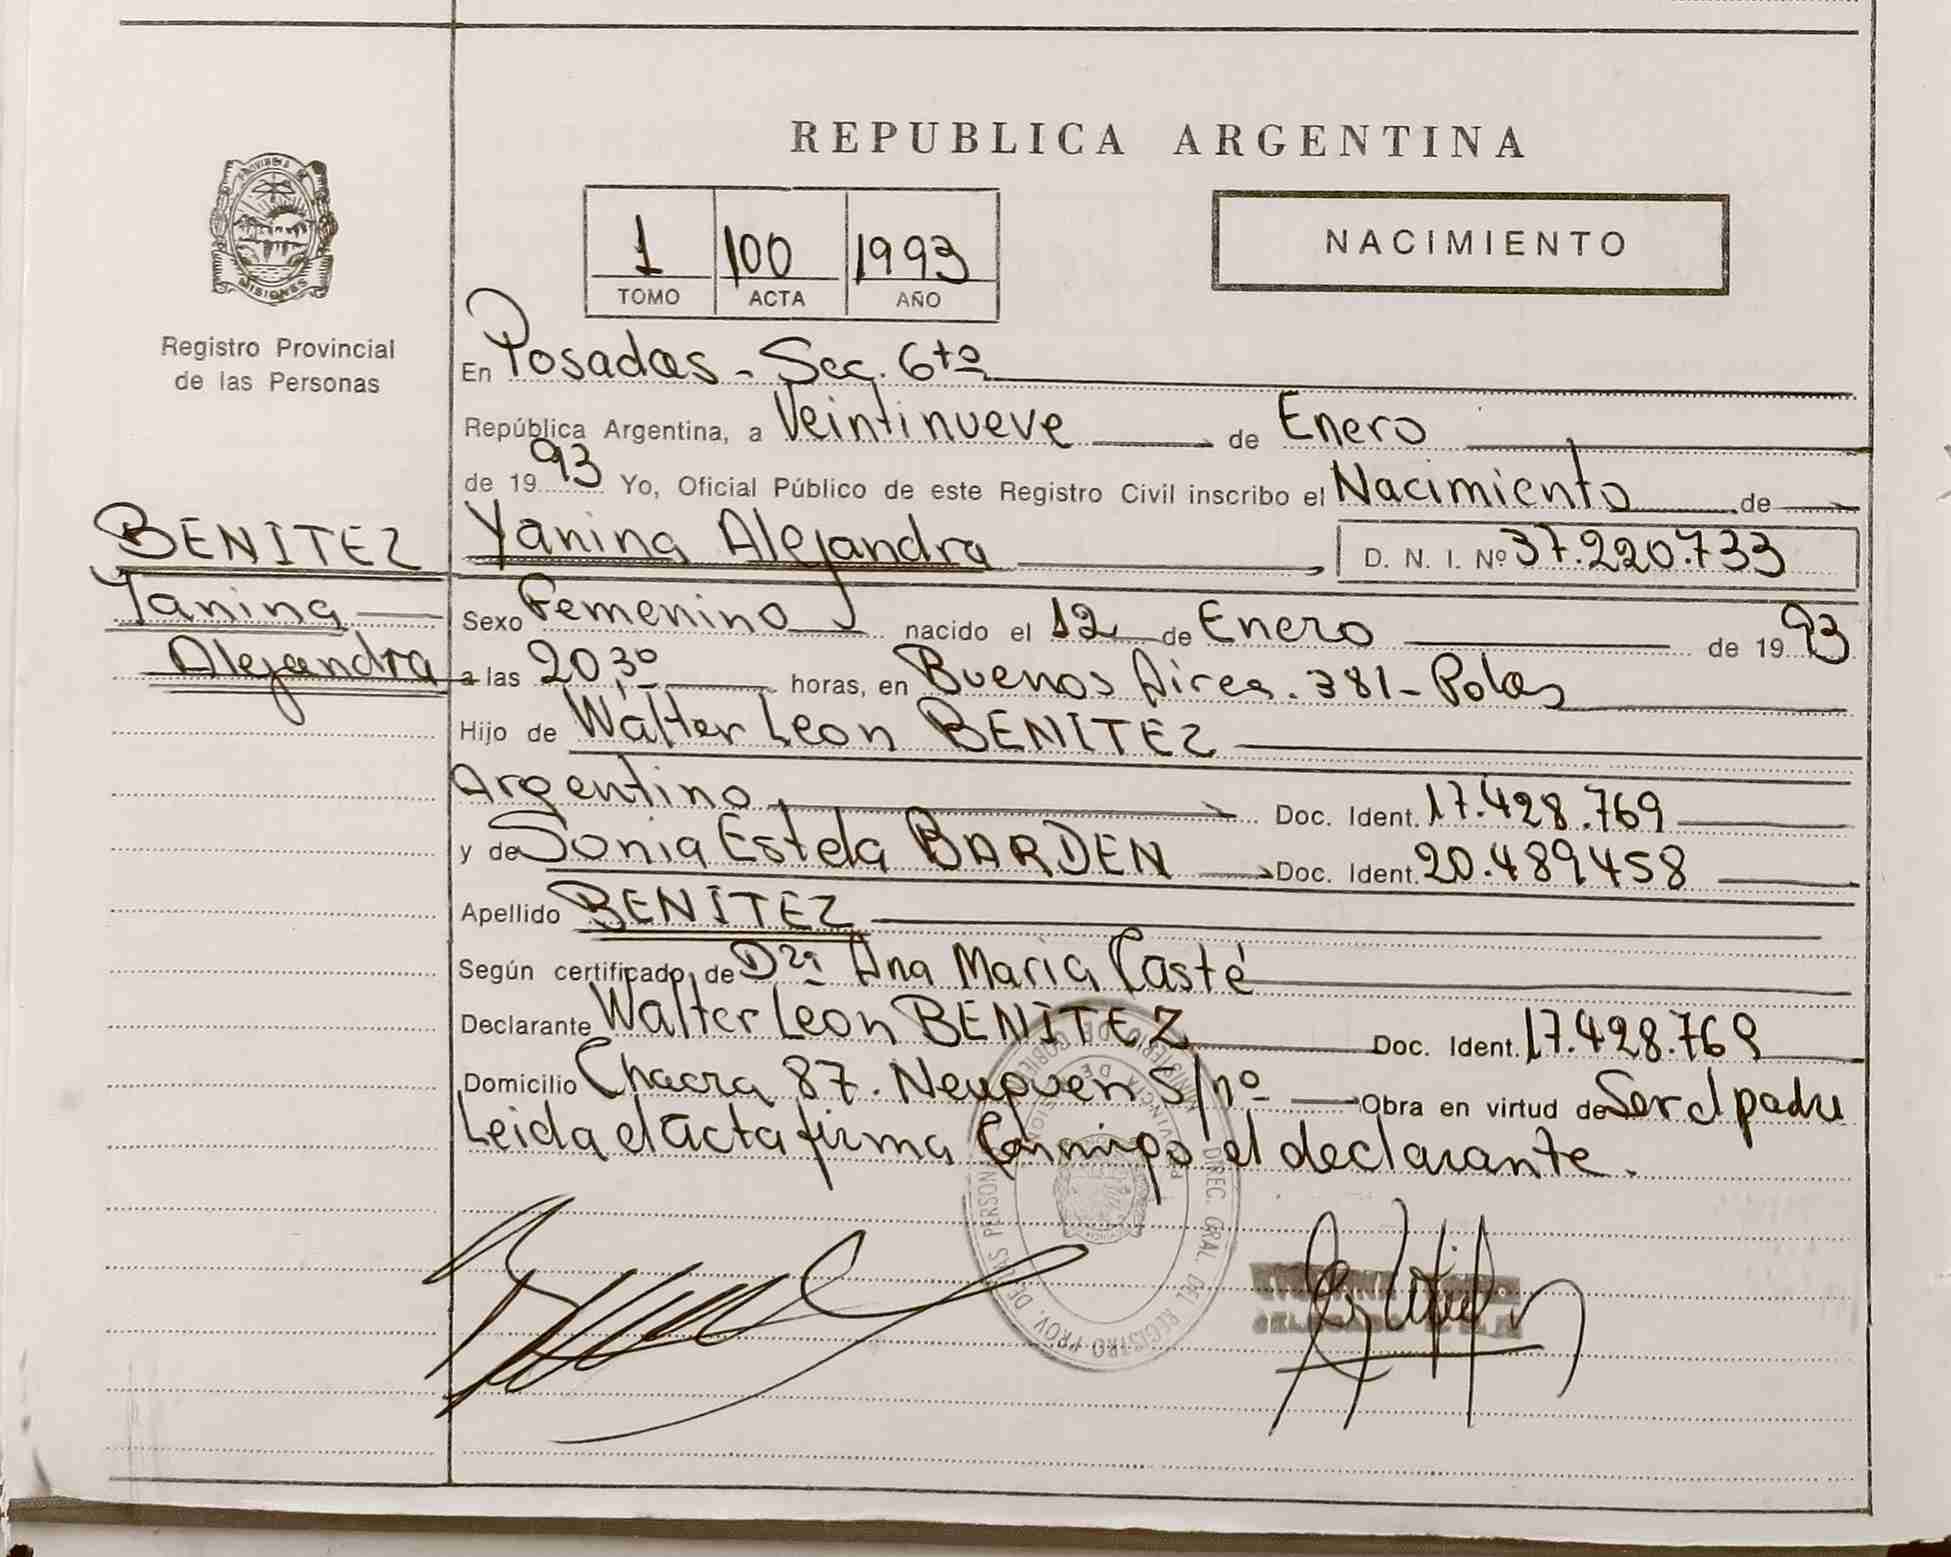 REPUBLICA ARGENTINA
PROVINCIA DE
MISIONES
Registro Provincial
de las Personas
1 100 1993
TOMO ACTA AÑO
NACIMIENTO
En Posadas - Sec. 6ta
República Argentina, a Veintinueve de Enero
de 1993 Yo, Oficial Público de este Registro Civil inscribo el Nacimiento de
BENITEZ
Yanina
Alejandra
Yanina Alejandra D. N. I. Nº 37.220.733
Sexo Femenino nacido el 12 de Enero de 1993
a las 20,30 horas, en Buenos Aires. 381 - Pdas
Hijo de Walter Leon BENITEZ
Argentino Doc. Ident. 17.428.769
y de Sonia Estela BARDEN Doc. Ident. 20.489458
Apellido BENITEZ
Según certificado, de Dra Ana Maria Casté
Declarante Walter Leon BENITEZ Doc. Ident. 17.428.769
Domicilio Chacra 87. Neuquen S/nº Obra en virtud de Ser el padre
Leida el acta firma Conmigo el declarante.
DIREC. GRAL. DEL REGISTRO PROV. DE LAS PERSON
PROVINCIA DE